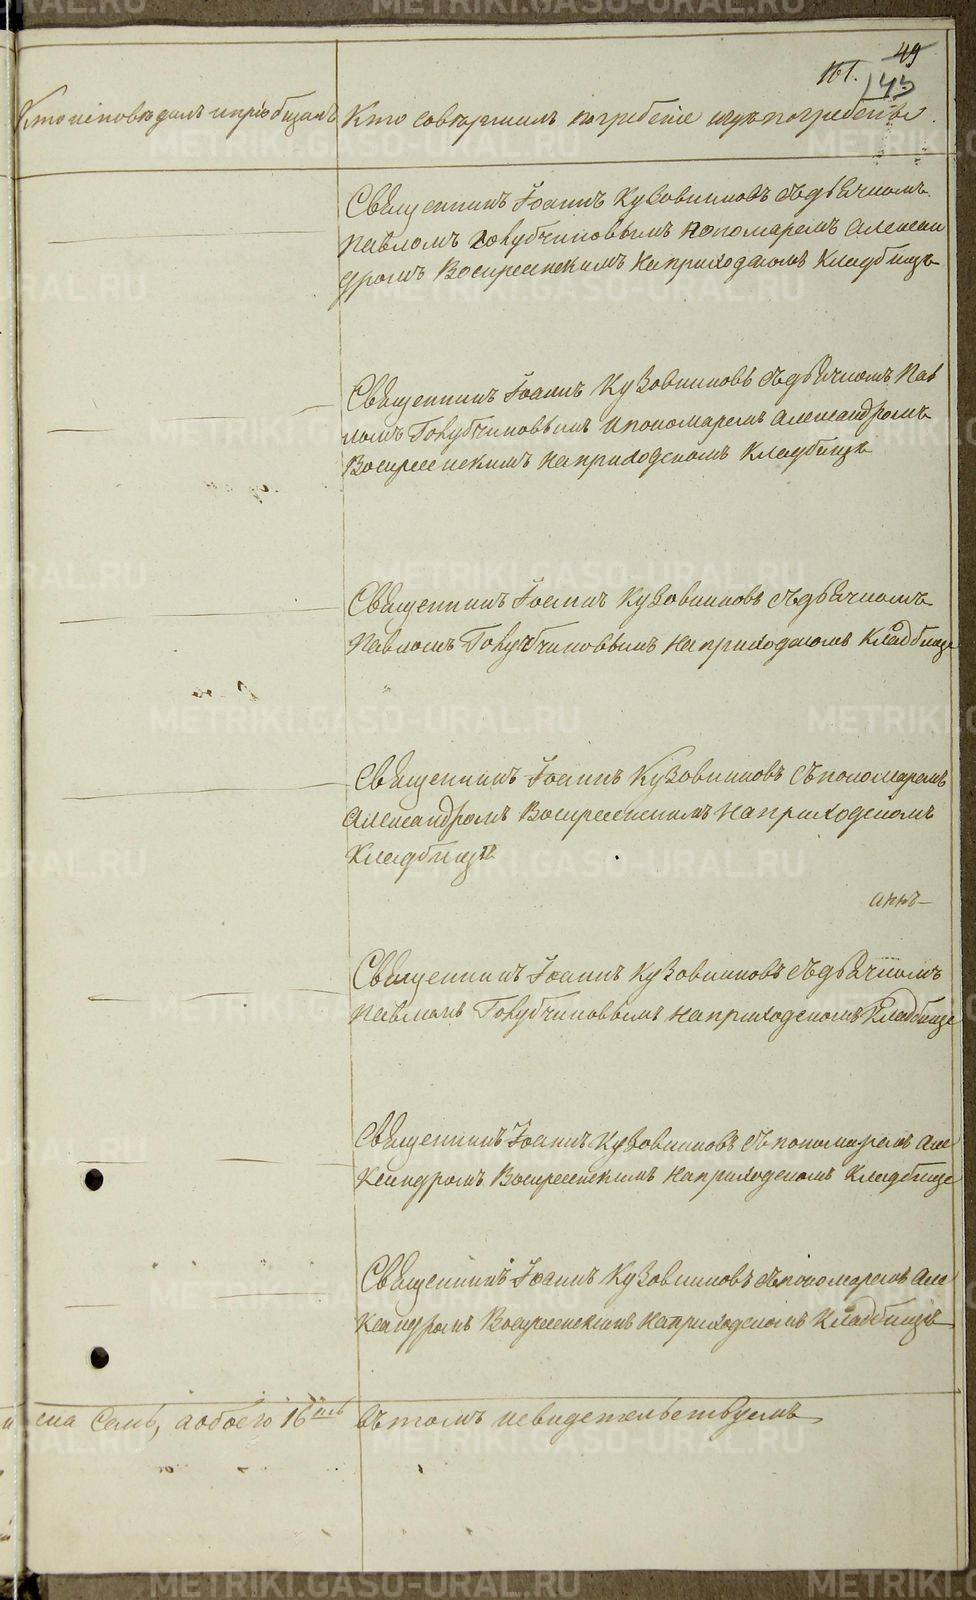 49
161.
143
Кто исповѣдалъ и пріобщалъ
Кто совершилъ погребеніе и гдѣ погребены
Священникъ Іоаннъ Кузовниковъ съ дьячкомъ
Павломъ Голубчиковымъ пономаремъ Алексан
дромъ Воскресенскимъ на приходскомъ кладбищѣ
Священникъ Іоаннъ Кузовниковъ съ дьячкомъ Пав
ломъ Голубчиковымъ и пономаремъ Александромъ
Воскресенскимъ на приходскомъ кладбищѣ
Священникъ Іоаннъ Кузовниковъ съ дьячкомъ
Павломъ Голубчиковымъ на приходскомъ кладбище
Священникъ Іоаннъ Кузовниковъ съ пономаремъ
Александромъ Воскресенскимъ на приходскомъ
кладбищѣ
Священникъ Іоаннъ Кузовниковъ съ дьячкомъ
Павломъ Голубчиковымъ на приходскомъ кладбище
Священникъ Іоаннъ Кузовниковъ съ пономаремъ Але
ксандромъ Воскресенскимъ на приходскомъ кладбище
Священникъ Іоаннъ Кузовниковъ съ пономаремъ Але
ксандромъ Воскресенскимъ на приходскомъ кладбищѣ
ска семь, а обоего 16
въ томъ и свидетельствуемъ
METRIKI.GASO-URAL.RU